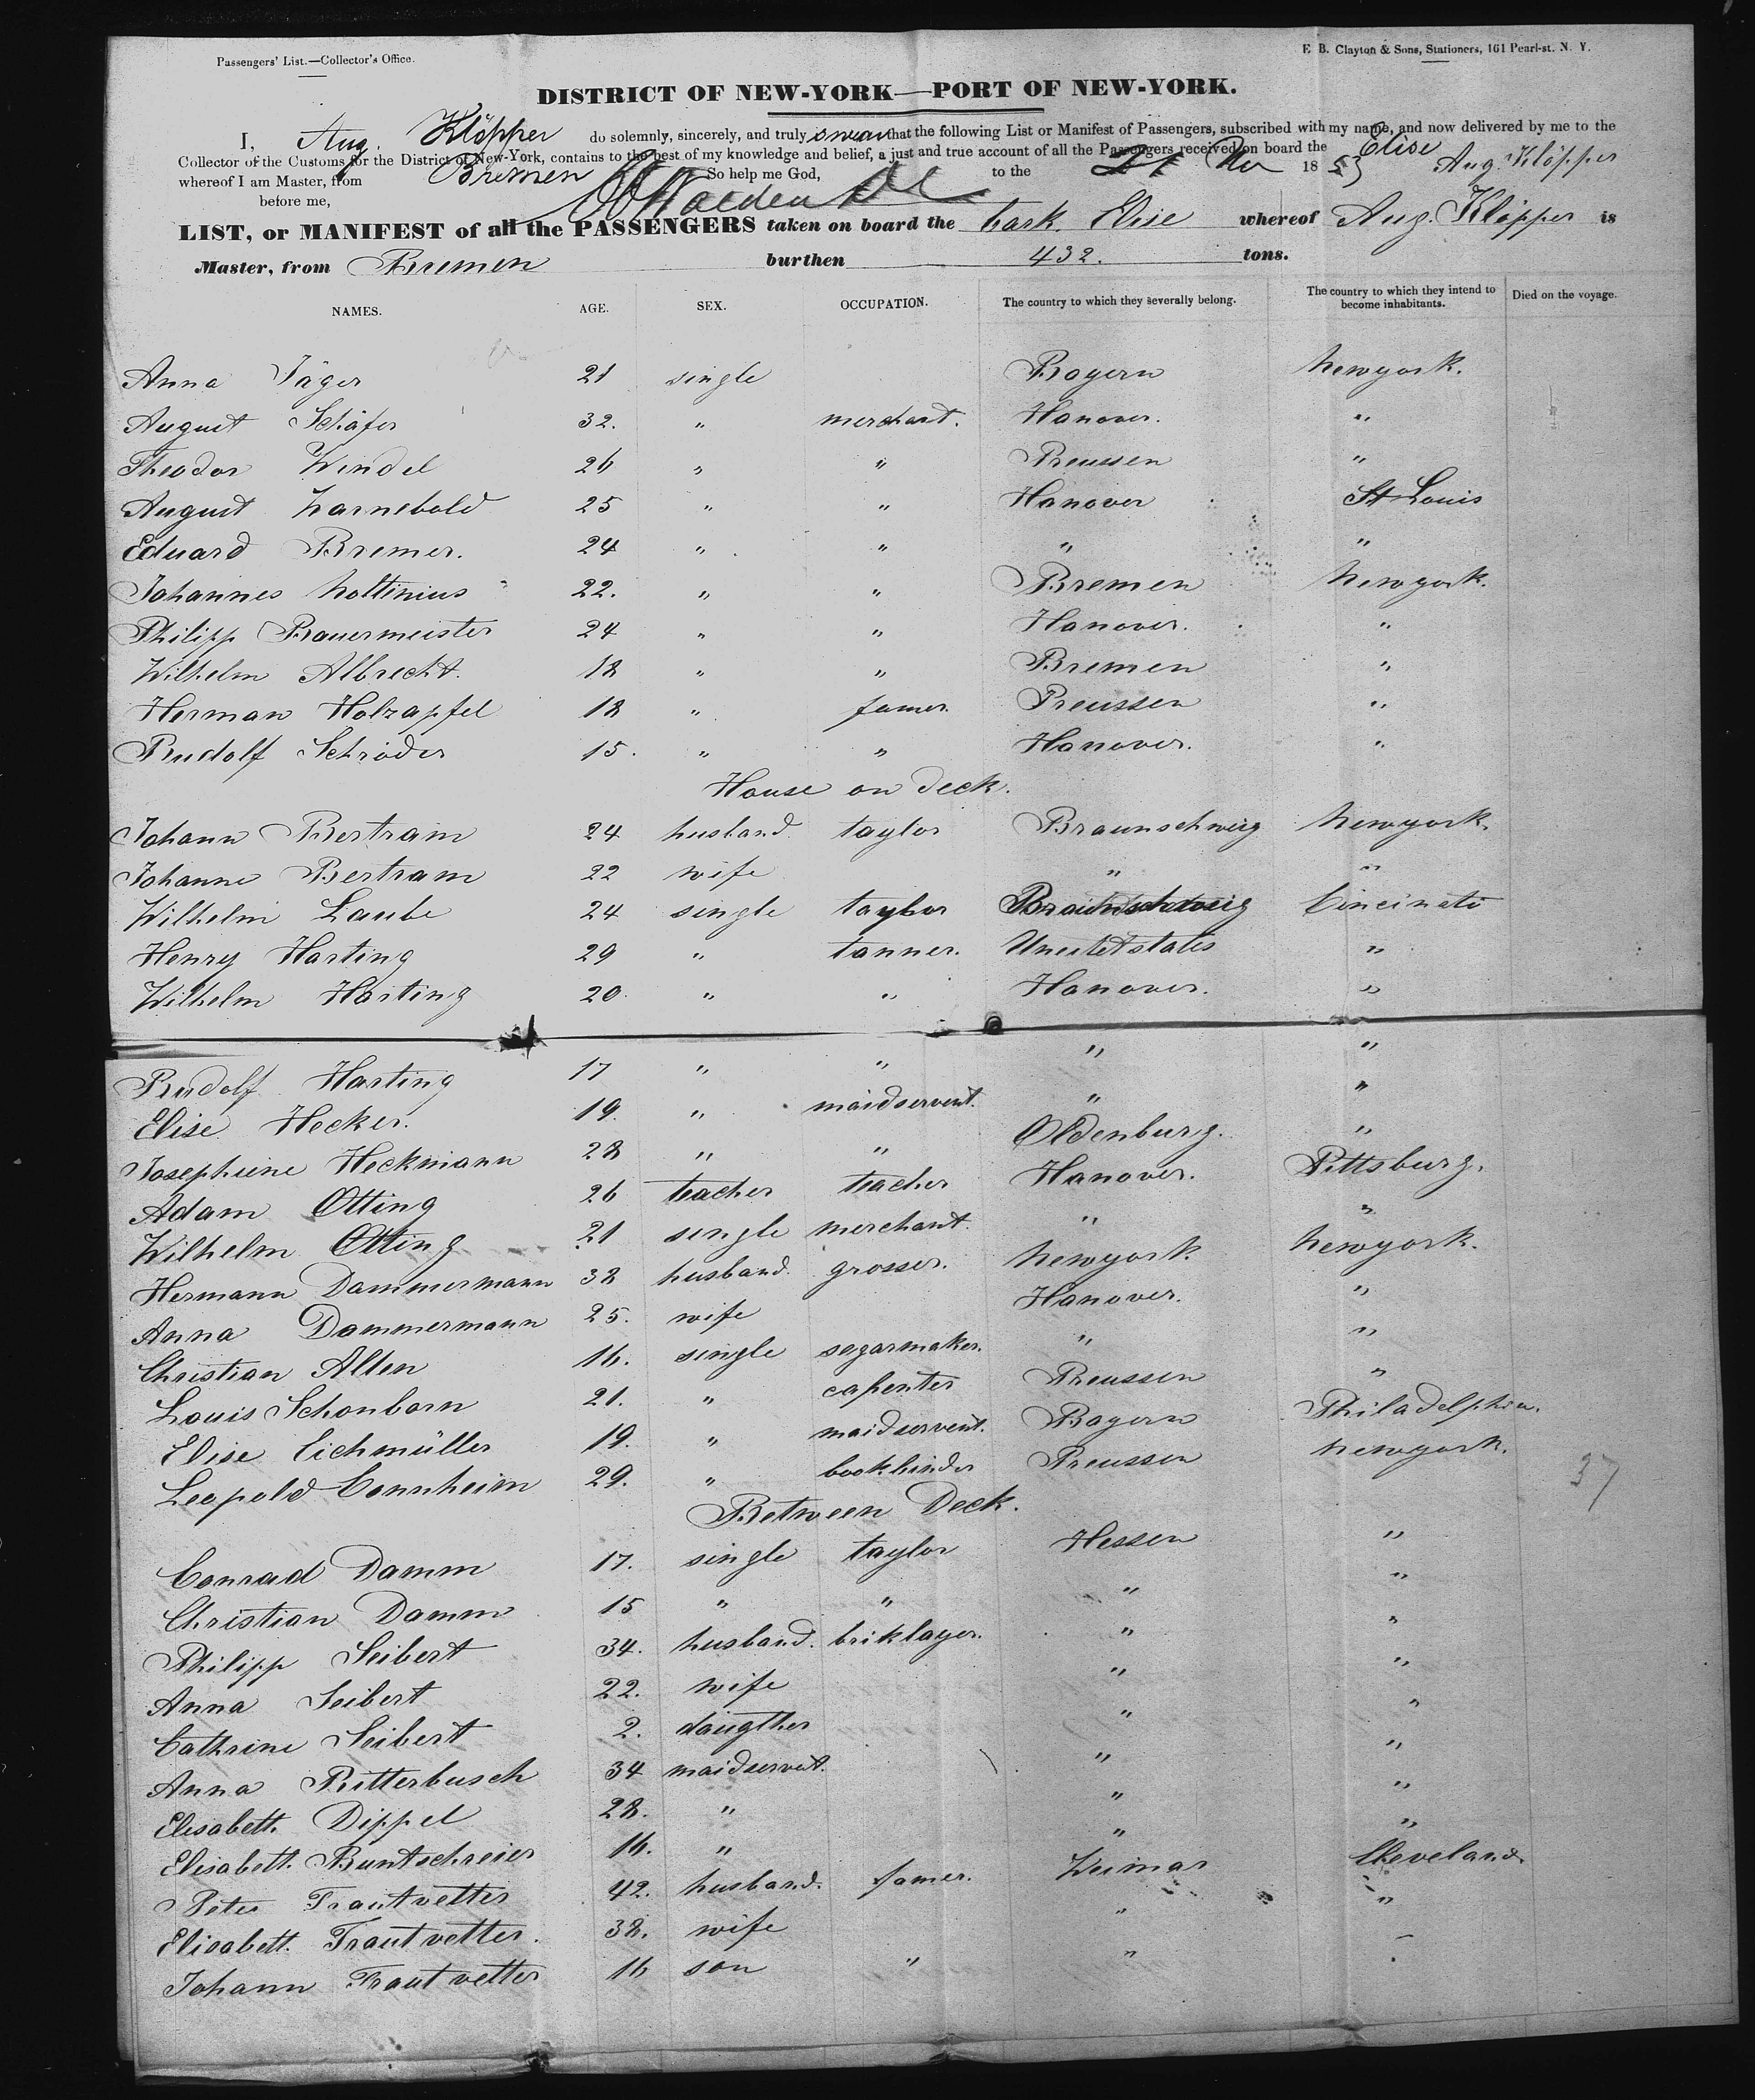 Passengers' List.—Collector's Office.
F. B. Clayton & Sons, Stationers, 161 Pearl-st. N. Y.
DISTRICT OF NEW-YORK—PORT OF NEW-YORK.
I, Aug. Klöpper do solemnly, sincerely, and truly swear that the following List or Manifest of Passengers, subscribed with my name, and now delivered by me to the
Collector of the Customs for the District of New-York, contains to the best of my knowledge and belief, a just and true account of all the Passengers received on board the Elise
whereof I am Master, from Bremen So help me God, to the 18 53 Aug. Klöpper
before me,
LIST, or MANIFEST of all the PASSENGERS taken on board the bark Elise whereof Aug. Klöpper is
Master, from Bremen burthen 432. tons.
NAMES. AGE. SEX. OCCUPATION. The country to which they severally belong. The country to which they intend to become inhabitants. Died on the voyage.
Anna Jäger 21 single Bayern Newyork.
August Schäfer 32. " merchant. Hanover. "
Theodor Windel 26 " " Preussen "
August Harnebold 25 " " Hanover St Louis
Eduard Bremer. 24 " " " "
Johannes Noltinius 22. " " Bremen Newyork.
Philipp Bauermeister 24 " " Hanover. "
Wilhelm Albrecht. 18 " " Bremen "
Herman Holzapfel 18 " famer. Preussen "
Rudolf Schröder 15. " " Hanover. "
House on deck.
Johann Bertram 24 husband. taylor Braunschweig Newyork.
Johanne Bertram 22 wife " "
Wilhelm Laube 24 single taylor Braunschweig Cincinati
Henry Harting 29 " tanner. Uneitetstates "
Wilhelm Harting 20. " " Hanover. "
Rudolf Harting 17 " " " "
Elise Hecker. 19. " maidservent. " "
Josephiene Heckmann 28 " " Oldenburg. "
Adam Otting 26 teacher teacher Hanover. Pittsburg.
Wilhelm Otting 21 single merchant. " "
Hermann Dammermann 38 husband. grosser. Newyork Newyork.
Anna Dammermann 25. wife Hanover. "
Christian Alten 16. single segarmaker. " "
Louis Schonborn 21. " capenter Preussen "
Elise Eichmüller 19. " maidservent. Bayern Philadelphia.
Leopold Connheim 29. " bookbinder Preussen Newyork.
37
Between Deck.
Conrad Damm 17. single taylor Hessen "
Christian Damm 15 " " " "
Philipp Seibert 34. husband. briklayer. " "
Anna Seibert 22. wife " "
Cathrine Seibert 2. daugther " "
Anna Ritterbusch 34 maidservent. " "
Elisabett. Dippel 28. " " "
Elisabett. Buntschreier 16. " " "
Peter Trautvetter 42. husband. famer. Weimar Cleveland.
Elisabett. Trautvetter. 38. wife " "
Johann Trautvetter 16 son " "